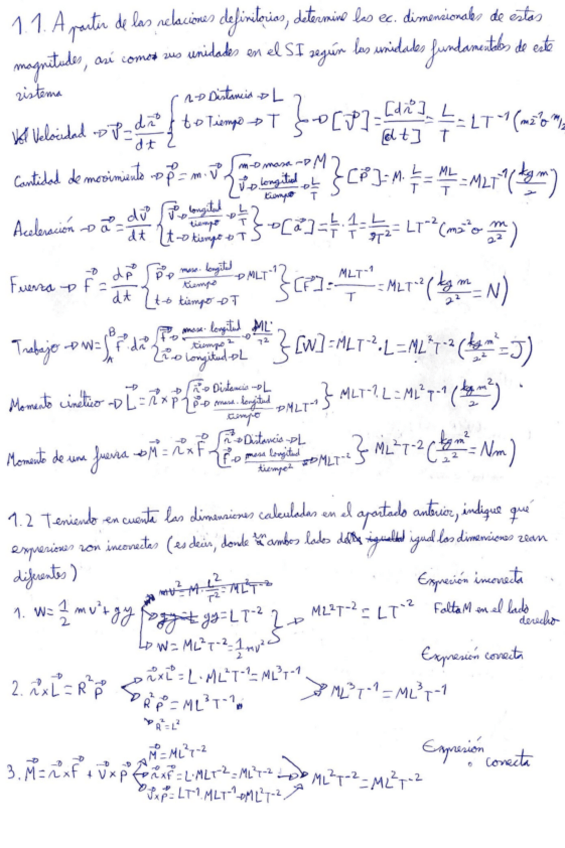 1.1. A partir de las relaciones definitorias, determine las ec. dimensionales de estas
magnitudes, así como sus unidades en el SI según las unidades fundamentales de este
sistema
Velocidad → v⃗ = dr⃗/dt { r → Distancia → L; t → Tiempo → T } → [v⃗] = [dr⃗]/[dt] = L/T = LT⁻¹ (ms⁻¹ o m/s
Cantidad de movimiento → p⃗ = m·v⃗ { m → masa → M; v⃗ → longitud/tiempo → L/T } [p⃗] = M·L/T = ML/T = MLT⁻¹ (kg m/s)
Aceleración → a⃗ = dv⃗/dt { v⃗ → longitud/tiempo → L/T; t → tiempo → T } → [a⃗] = L/T · 1/T = L/T² = LT⁻² (ms⁻² o m/s²)
Fuerza → F⃗ = dp⃗/dt { p⃗ → masa·longitud/tiempo → MLT⁻¹; t → tiempo → T } [F⃗] = MLT⁻¹/T = MLT⁻² (kg m/s² = N)
Trabajo → W = ∫ᴬᴮ F⃗·dr⃗ { F⃗ → masa·longitud/tiempo² → ML/T²; r⃗ → Longitud → L } [W] = MLT⁻²·L = ML²T⁻² (kg m²/s² = J)
Momento cinético → L⃗ = r⃗ x p⃗ { r⃗ → Distancia → L; p⃗ → masa·longitud/tiempo → MLT⁻¹ } MLT⁻¹·L = ML²T⁻¹ (kg m²/s)
Momento de una fuerza → M⃗ = r⃗ x F⃗ { r⃗ → Distancia → L; F⃗ → masa longitud/tiempo² → MLT⁻² } ML²T⁻² (kg m²/s² = Nm)
1.2 Teniendo en cuenta las dimensiones calculadas en el apartado anterior, indique qué
expresiones son incorrectas (es decir, donde en ambos lados del igual las dimensiones sean
diferentes)
Expresión incorrecta
mv² = M·L²/T² = ML²T⁻²
1. W = 1/2 mv² + gy → gy = LT⁻² → ML²T⁻² = LT⁻² Falta M en el lado
derecho
W = ML²T⁻² = 1/2 mv²
Expresión correcta
r⃗ x L⃗ = L·ML²T⁻¹ = ML³T⁻¹
2. r⃗ x L⃗ = R²p⃗ → ML³T⁻¹ = ML³T⁻¹
R²p⃗ = ML³T⁻¹
R² = L²
Expresión
correcta
M⃗ = ML²T⁻²
3. M⃗ = r⃗ x F⃗ + v⃗ x p⃗ → r⃗ x F⃗ = L·MLT⁻² = ML²T⁻² → ML²T⁻² = ML²T⁻²
v⃗ x p⃗ = LT⁻¹·MLT⁻¹ → ML²T⁻²